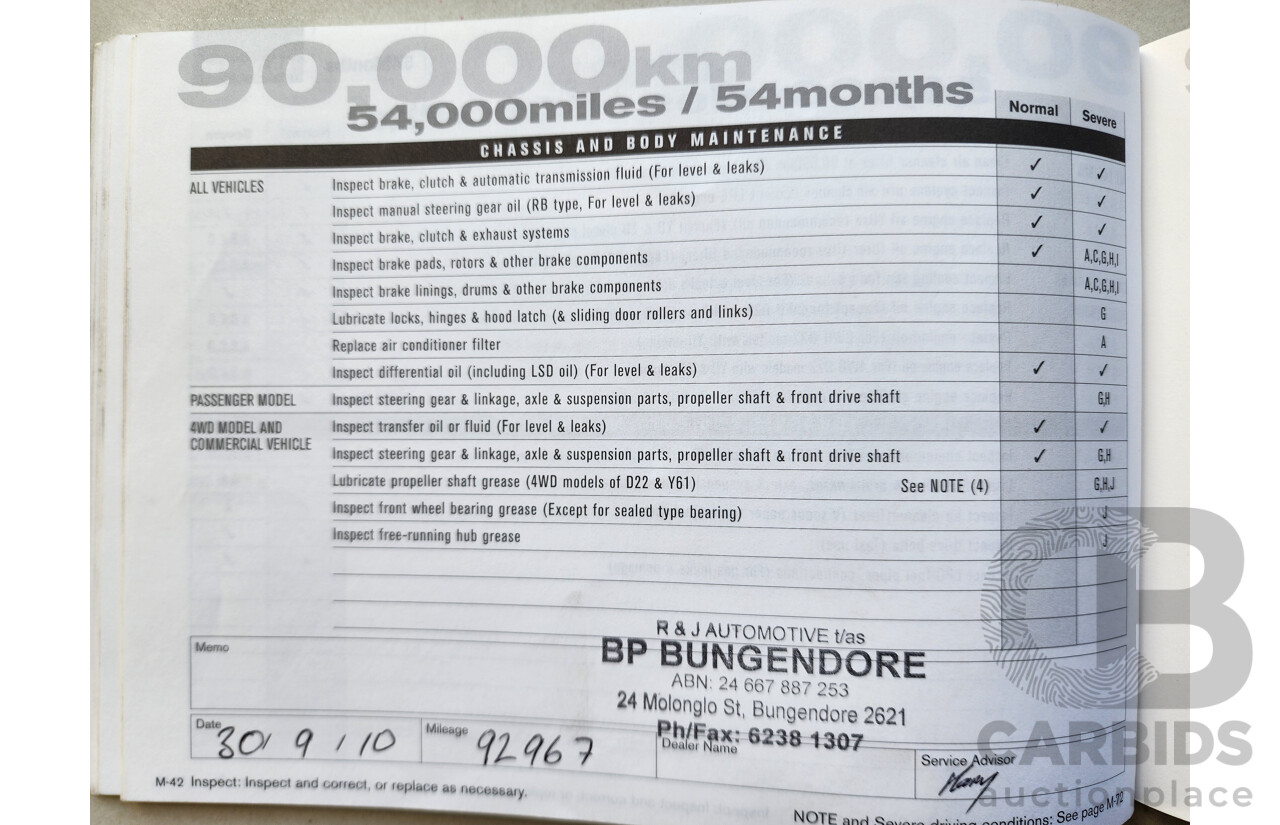 90,000km
54,000miles / 54months
Normal Severe
CHASSIS AND BODY MAINTENANCE
ALL VEHICLES Inspect brake, clutch & automatic transmission fluid (For level & leaks) ✓ ✓
Inspect manual steering gear oil (RB type, For level & leaks) ✓ ✓
Inspect brake, clutch & exhaust systems ✓ ✓
Inspect brake pads, rotors & other brake components ✓ A,C,G,H,I
Inspect brake linings, drums & other brake components A,C,G,H,I
Lubricate locks, hinges & hood latch (& sliding door rollers and links) G
Replace air conditioner filter A
Inspect differential oil (including LSD oil) (For level & leaks) ✓ ✓
PASSENGER MODEL Inspect steering gear & linkage, axle & suspension parts, propeller shaft & front drive shaft G,H
4WD MODEL AND Inspect transfer oil or fluid (For level & leaks) ✓ ✓
COMMERCIAL VEHICLE Inspect steering gear & linkage, axle & suspension parts, propeller shaft & front drive shaft ✓ G,H
Lubricate propeller shaft grease (4WD models of D22 & Y61) See NOTE (4) G,H,J
Inspect front wheel bearing grease (Except for sealed type bearing) J
Inspect free-running hub grease J
Memo
R & J AUTOMOTIVE t/as
BP BUNGENDORE
ABN: 24 667 887 253
24 Molonglo St, Bungendore 2621
Ph/Fax: 6238 1307
Date 30/ 9 / 10 Mileage 92967 Dealer Name Service Advisor
M-42 Inspect: Inspect and correct, or replace as necessary.
NOTE and Severe driving conditions: See page M-72
CB
CARBIDS
auctionplace